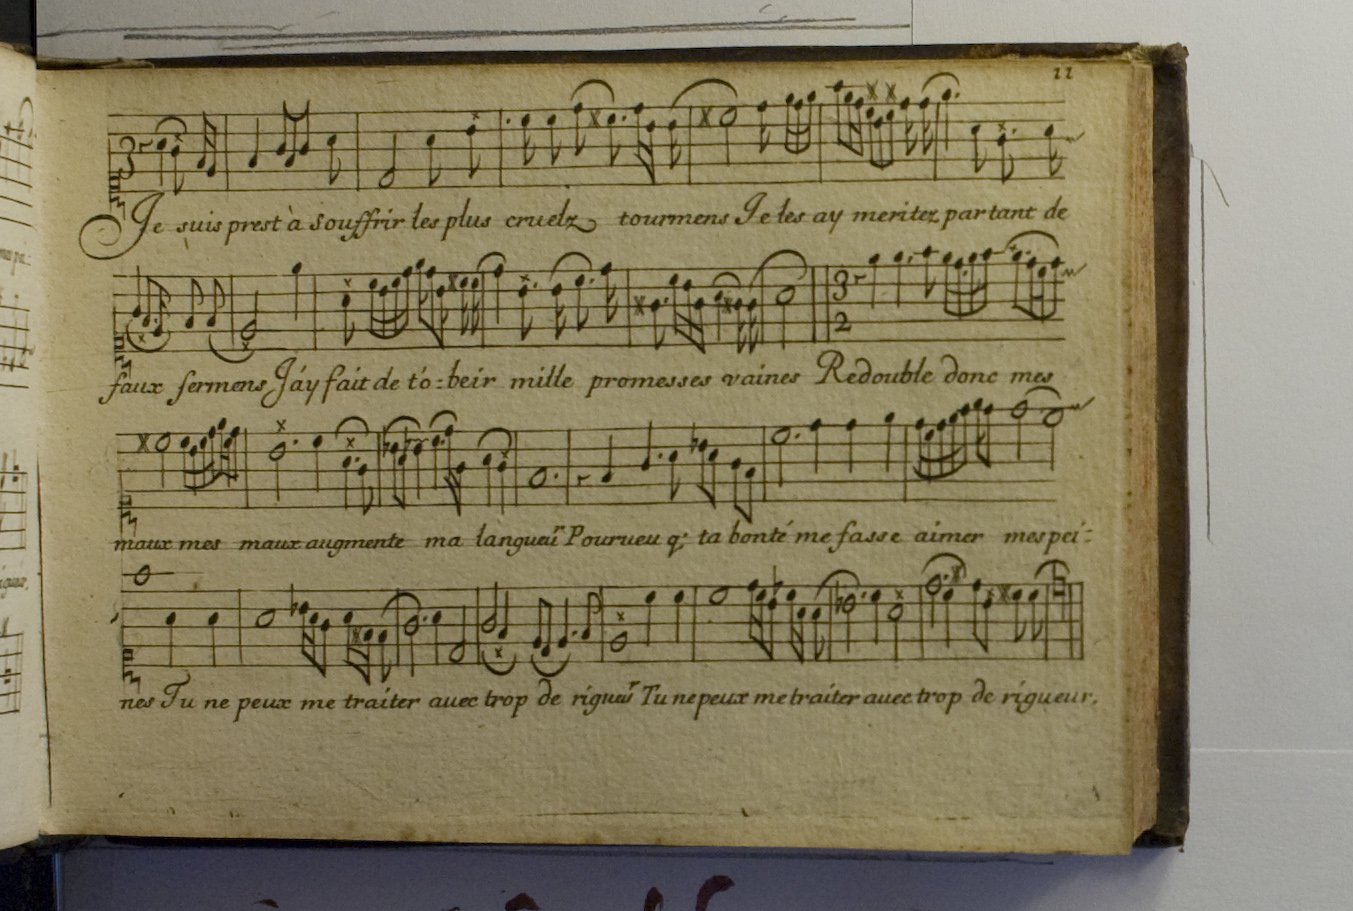 11
Je suis prest à souffrir les plus cruelz tourmens Je les ay meritez par tant de
faux sermens J'áy fait de t'o:beir mille promesses vaines Redouble donc mes
maux mes maux augmente ma langueur Pourueu q; ta bonté me fasse aimer mes pei:
nes Tu ne peux me traiter auec trop de rigueur Tu ne peux me traiter auec trop de rigueur.